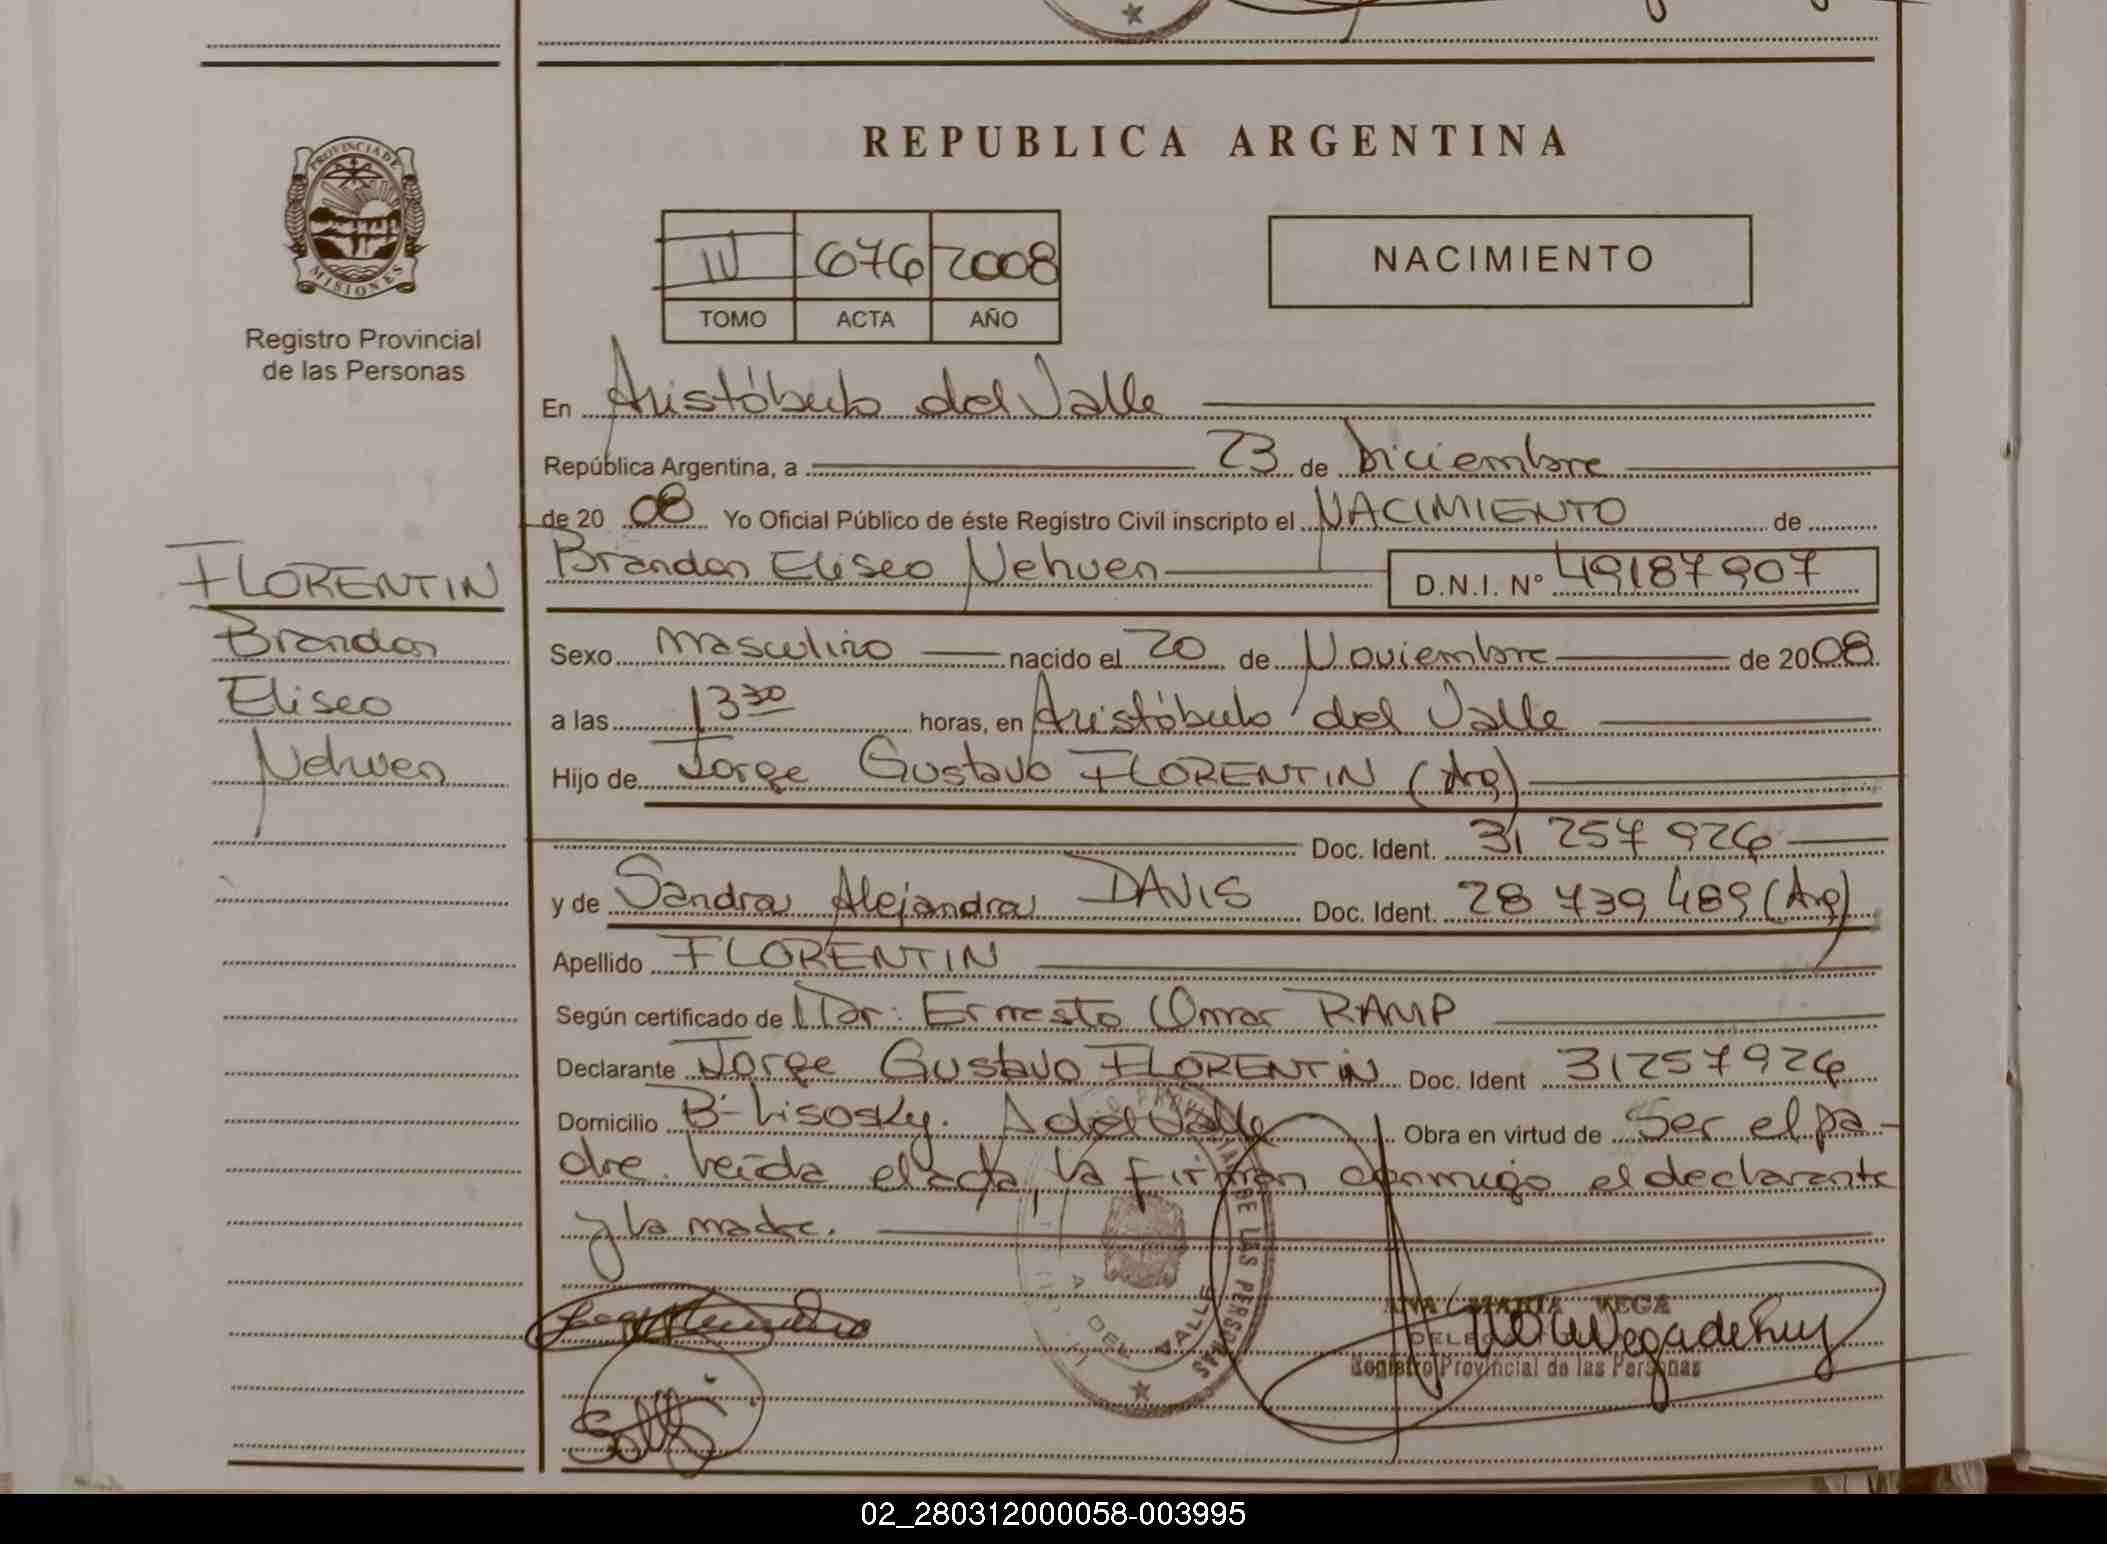 REPUBLICA ARGENTINA
PROVINCIA DE
MISIONES
Registro Provincial
de las Personas
676 2008
TOMO ACTA AÑO
NACIMIENTO
En Aristóbulo del Valle
República Argentina, a 23 de Diciembre
de 20 08 Yo Oficial Público de éste Registro Civil inscripto el NACIMIENTO de
Brandon Eliseo Nehuen D.N.I. Nº 49187907
FLORENTIN
Brandon
Eliseo
Nehuen
Sexo masculino nacido el 20 de Noviembre de 2008
a las 13 30 horas, en Aristóbulo del Valle
Hijo de Jorge Gustavo FLORENTIN (Arg)
Doc. Ident. 31 257 926
y de Sandra Alejandra DAVIS Doc. Ident. 28 739 489 (Arg)
Apellido FLORENTIN
Según certificado de Dr: Ernesto Omar RAMP
Declarante Jorge Gustavo FLORENTIN Doc. Ident 31257926
Domicilio Bº Lisosky. A del Valle Obra en virtud de Ser el pa-
dre. Leída el acta, la firman conmigo el declarante
y la madre.
DE LAS PERSONAS
DEL VALLE
ANA MARIA VEGA
Registro Provincial de las Personas
02_280312000058-003995